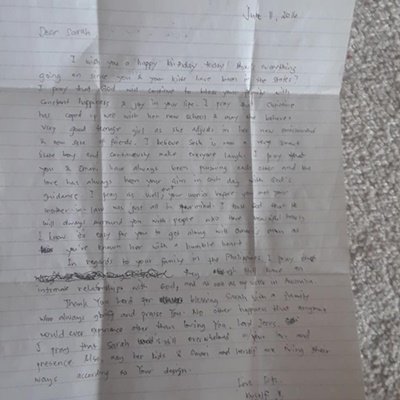 June 11, 2016
Dear Sarah
I wish you a happy birthday today! How's everything
going on since you & your kids have been in the states?
I pray that God will continue to bless your family with
constant happiness & joy in your life. I pray that
has coped up well with her new school & may she behave a
very good teenage girl as she adjusts in her new environment
& new sets of friends. I believe Seth is now a very smart
little boy and continuously make everyone laugh. I pray that
you & have always been pursuing each other and the
love has always been your aim in each day with God's
guidance. I pray as well, that your worries before you met your
mother in law was just all in mind. I trust God that He
will always surround you with people who have beautiful hearts.
I know it's easy for you to get along with others even as
you've known her with a humble heart.
In regards to your family in the Philippines, I pray that
they have an
intimate relationships with God, and as well as my wife in
Thank You Lord for blessing Sarah with a family
who always glorify and praise You. No other happiness that anyone
would ever experience other than loving You, Lord Jesus.
I pray that Sarah still overwhelmed in your
presence. Also, may her kids & and herself are living their
ways according to Your design.